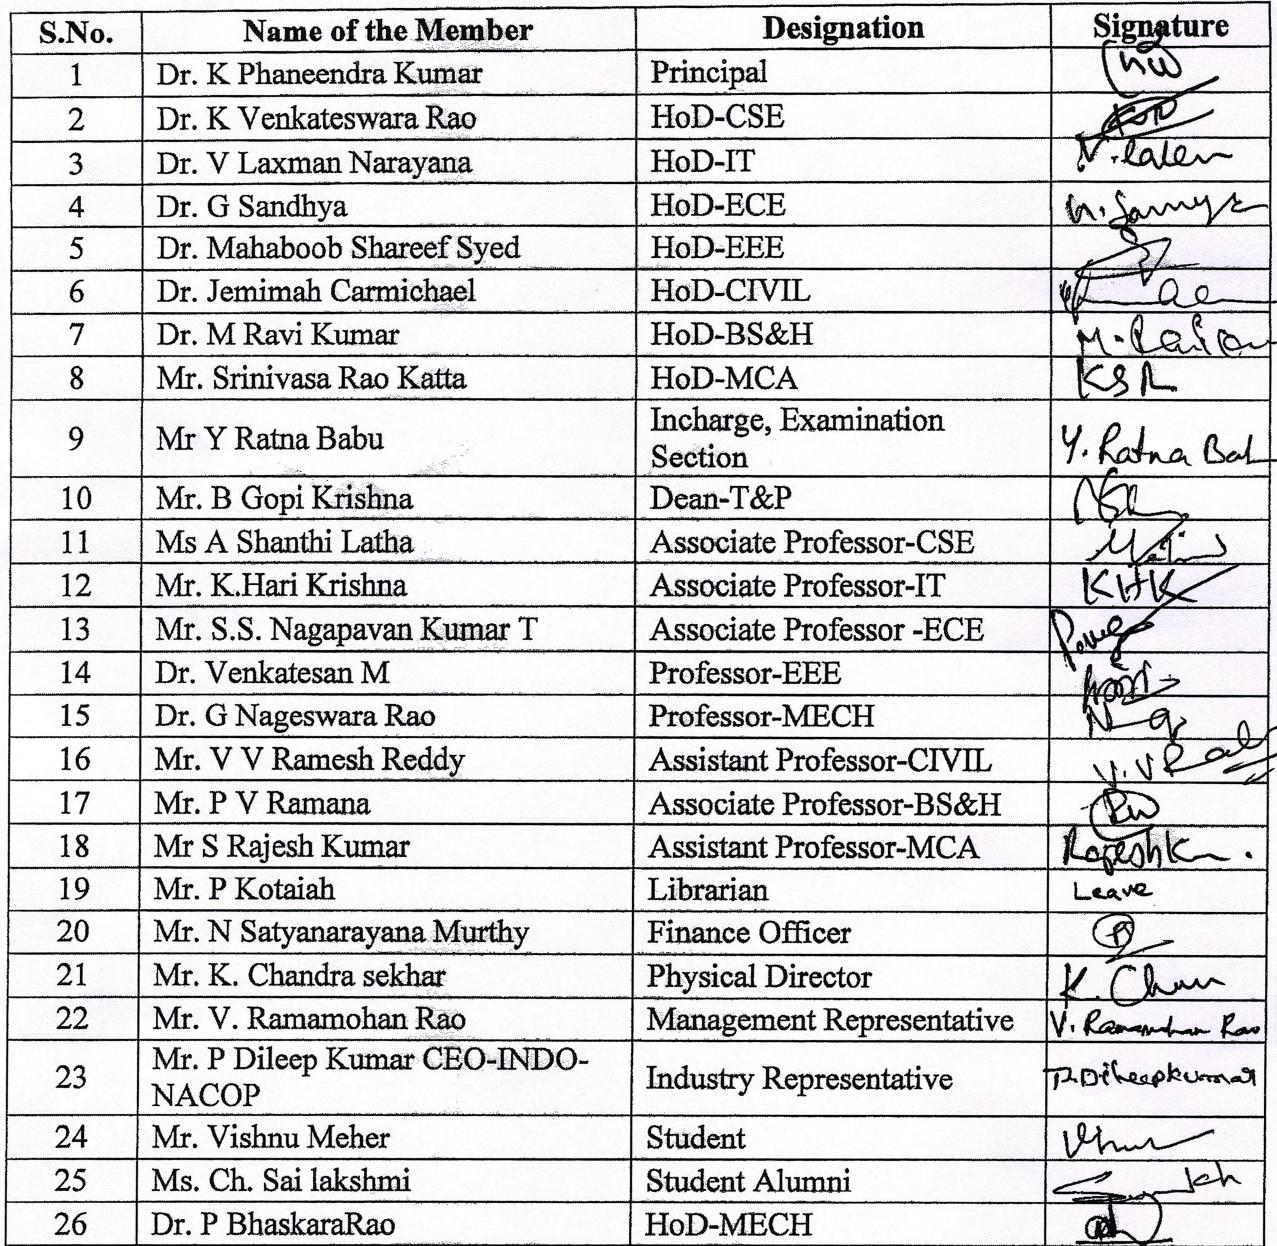 S.No. Name of the Member Designation Signature
1 Dr. K Phaneendra Kumar Principal
2 Dr. K Venkateswara Rao HoD-CSE
3 Dr. V Laxman Narayana HoD-IT
4 Dr. G Sandhya HoD-ECE
5 Dr. Mahaboob Shareef Syed HoD-EEE
6 Dr. Jemimah Carmichael HoD-CIVIL
7 Dr. M Ravi Kumar HoD-BS&H
8 Mr. Srinivasa Rao Katta HoD-MCA KSR
9 Mr Y Ratna Babu Incharge, Examination
Section Y. Ratna Bab
10 Mr. B Gopi Krishna Dean-T&P
11 Ms A Shanthi Latha Associate Professor-CSE
12 Mr. K.Hari Krishna Associate Professor-IT KHK
13 Mr. S.S. Nagapavan Kumar T Associate Professor -ECE
14 Dr. Venkatesan M Professor-EEE
15 Dr. G Nageswara Rao Professor-MECH
16 Mr. V V Ramesh Reddy Assistant Professor-CIVIL
17 Mr. P V Ramana Associate Professor-BS&H
18 Mr S Rajesh Kumar Assistant Professor-MCA
19 Mr. P Kotaiah Librarian Leave
20 Mr. N Satyanarayana Murthy Finance Officer
21 Mr. K. Chandra sekhar Physical Director
22 Mr. V. Ramamohan Rao Management Representative V. Ramamohan Rao
23 Mr. P Dileep Kumar CEO-INDO-
NACOP Industry Representative P. Dileepkumar
24 Mr. Vishnu Meher Student
25 Ms. Ch. Sai lakshmi Student Alumni
26 Dr. P BhaskaraRao HoD-MECH